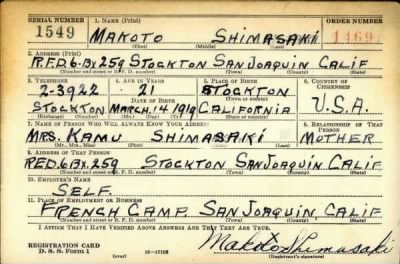 SERIAL NUMBER 1. NAME (Print) ORDER NUMBER
1549 MAKOTO SHIMASAKI 1469
(First) (Middle) (Last)
2. ADDRESS (Print)
R.F.D. 6-BX 259 STOCKTON SAN JOAQUIN CALIF
(Number and street or R. F. D. number) (Town) (County) (State)
3. TELEPHONE 4. AGE IN YEARS 5. PLACE OF BIRTH 6. COUNTRY OF CITIZENSHIP
2-3922 21 STOCKTON
DATE OF BIRTH (Town or county)
STOCKTON MARCH, 14, 1919 CALIFORNIA U.S.A.
(Exchange) (Number) (Mo.) (Day) (Yr.) (State or country)
7. NAME OF PERSON WHO WILL ALWAYS KNOW YOUR ADDRESS 8. RELATIONSHIP OF THAT PERSON
MRS. KAMU SHIMASAKI MOTHER
(Mr., Mrs., Miss) (First) (Middle) (Last)
9. ADDRESS OF THAT PERSON
R.F.D. 6-BX 259 STOCKTON SAN JOAQUIN CALIF
(Number and street or R. F. D. number) (Town) (County) (State)
10. EMPLOYER'S NAME
SELF
11. PLACE OF EMPLOYMENT OR BUSINESS
FRENCH CAMP, SAN JOAQUIN, CALIF
(Number and street or R. F. D. number) (Town) (County) (State)
I AFFIRM THAT I HAVE VERIFIED ABOVE ANSWERS AND THAT THEY ARE TRUE.
REGISTRATION CARD
D. S. S. Form 1 Makoto Shimasaki
(Registrant's signature)